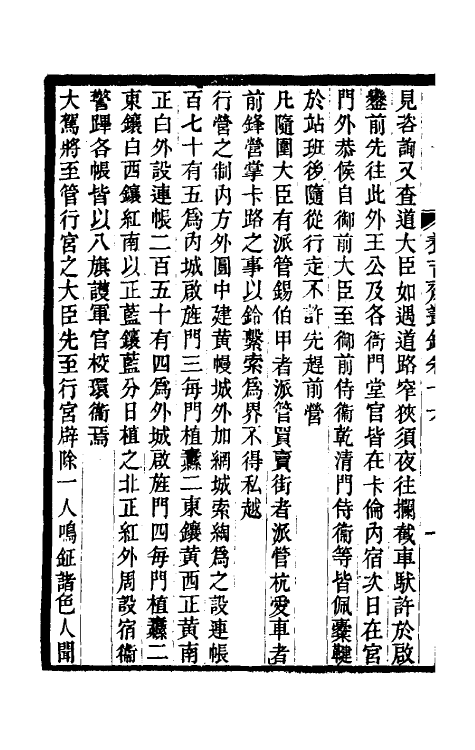 見咨詢又查道大臣如遇道路窄狹須夜往攔截車馱許於啟
鑾前先往此外王公及各衙門堂官皆在卡倫內宿次日在宮
門外恭候自御前大臣至御前侍衞乾清門侍衞等皆佩櫜鞬
於站班後隨從行走不許先趕前營
凡隨圍大臣有派管錫伯甲者派管買賣街者派管杭愛車者
前鋒營掌卡路之事以鈴繫索爲界不得私越
行營之制內方外圓中建黃幔城外加網城索綯爲之設連帳
百七十有五爲內城啟旌門三每門植纛二東鑲黃西正黃南
正白外設連帳二百五十有四爲外城啟旌門四每門植纛二
東鑲白西鑲紅南以正藍鑲藍分日植之北正紅外周設宿衞
警蹕各帳皆以八旗護軍官校環衞焉
大駕將至管行宮之大臣先至行宮辟除一人鳴鉦諸色人聞
養吉齋叢錄卷十六
一